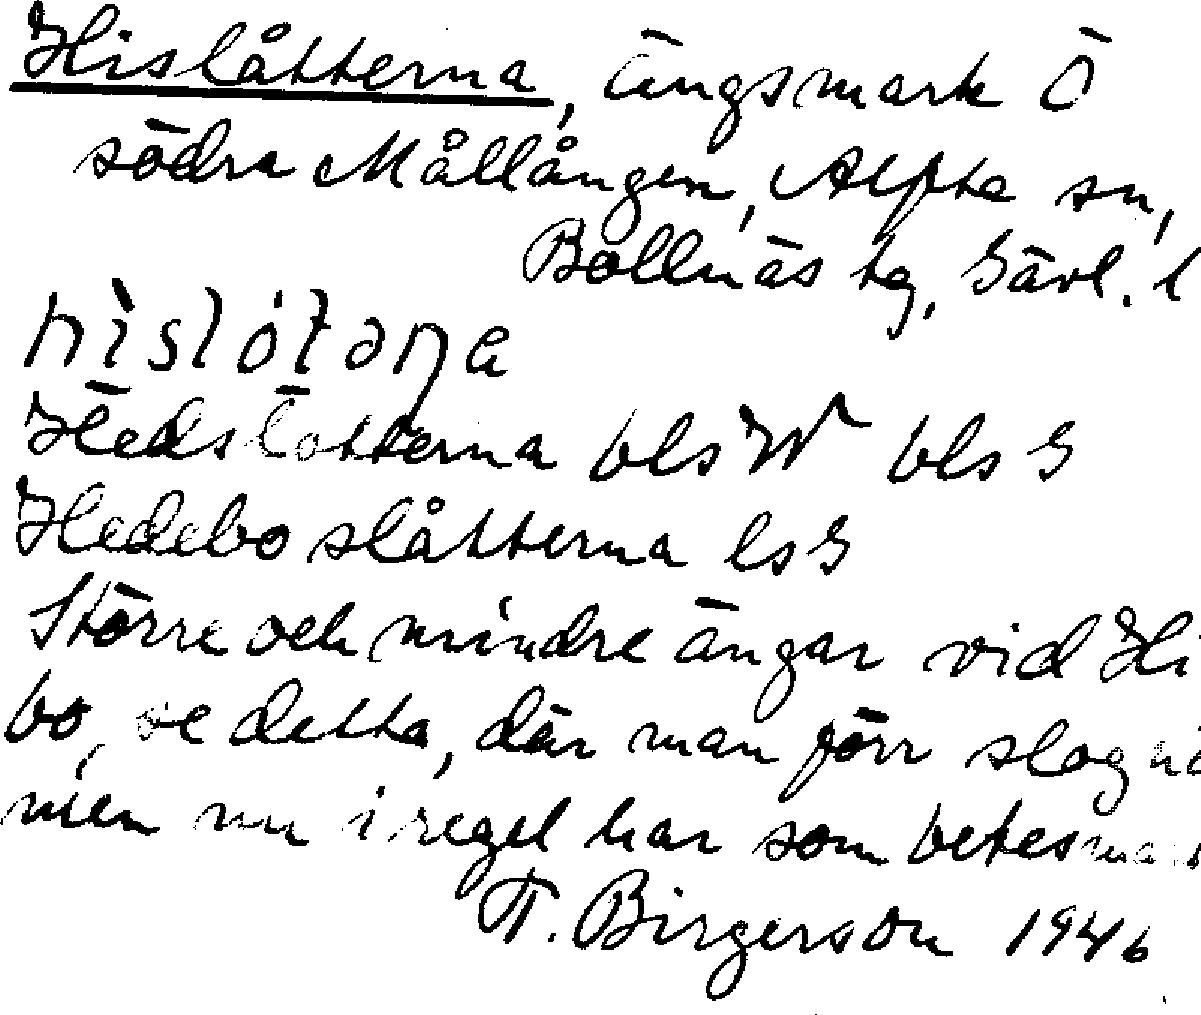 Hislåtterna, ängsmark Ö
södra Mållången, Alfta sn,
Bollnäs tg, Gävl. l
Hedslåtterna bls W bls G
Hedebo slåtterna ls G
Större och mindre ängar vid Hi
bo, se detta, där man förr slog
men nu i regel har som betesmar
T. Birgerson 1946